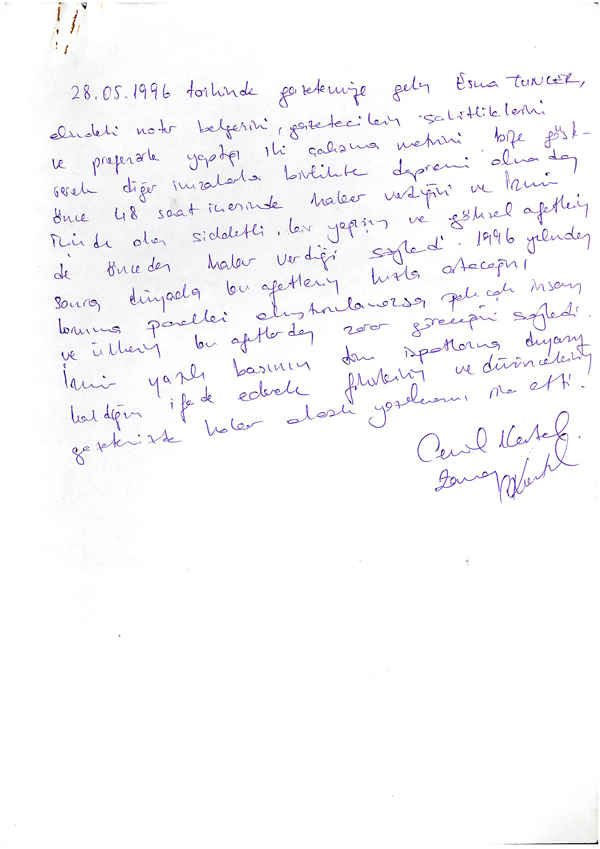 28.05.1996 tarihinde gazetemize gelen Esma TUNCER,
elindeki noter belgesini, gazetecilerin şahitliklerini
ve proflerle yaptığı iki çalışma metnini bize göst-
rerek diğer imzalarla birlikte depremi olmadan
önce 48 saat içerisinde haber verdiğini ve İzmir
ilinde olan şiddetli, bir yağışın ve göksel afetlerin
de önceden haber verdiği söyledi. 1996 yılından
sonra dünyada bu afetlerin hızla artacağını
koruma panelleri oluşturulamazsa pek çok insanın
ve ülkenin bu afetlerden zarar göreceğini söyledi.
İzmir yazılı basının tüm ispatlarına duyarsız
kaldığını ifade ederek fikirlerinin ve düşüncelerinin
gazetenizde haber olarak yazılmasını rica etti.
Cemil
Zaman